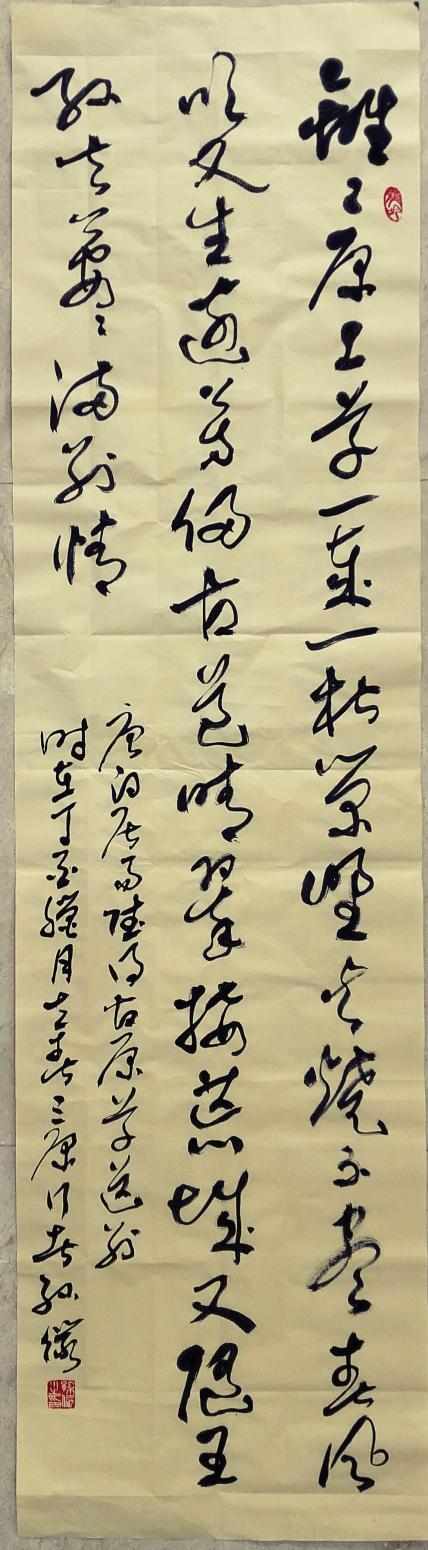 離〻原上草一歲一枯榮野火燒不盡春風
吹又生遠芳侵古道晴翠接荒城又王
孫去萋〻滿別情
唐白居易賦得古原草送別
时在丁酉臘月立春三原行者孫